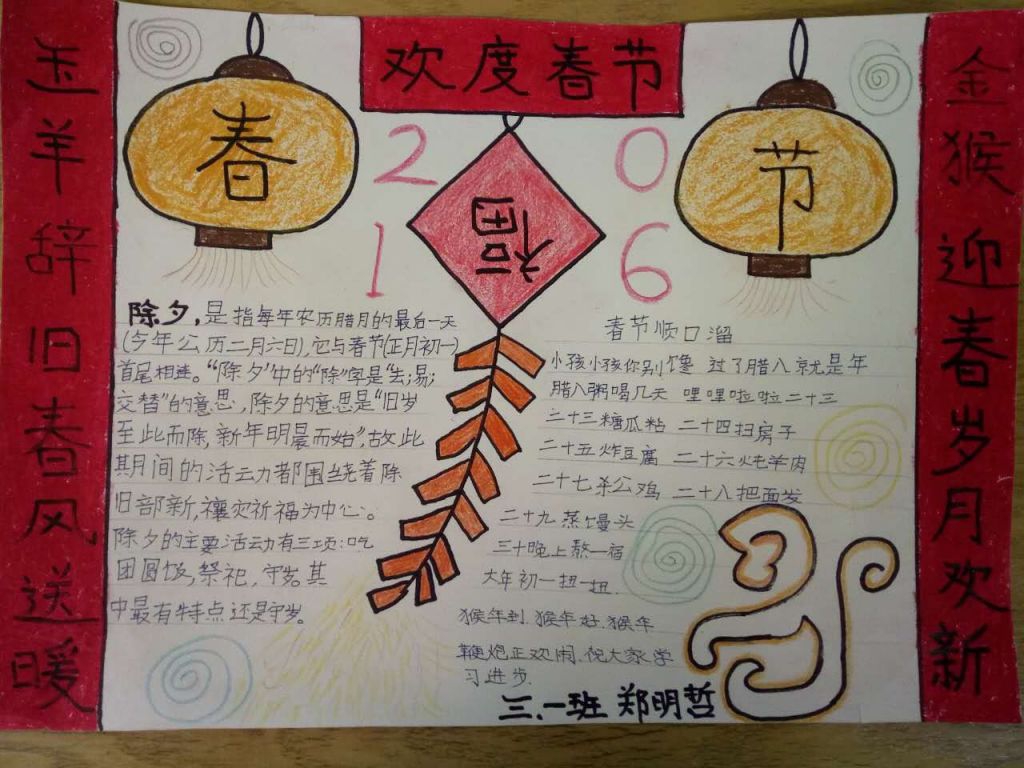 欢度春节
玉羊辞旧春风送暖
金猴迎春岁月欢新
春
节
2 0
1 6
福
除夕,是指每年农历腊月的最后一天
(今年公历二月六日),它与春节(正月初一)
首尾相连。“除夕”中的“除”字是“去;易;
交替”的意思,除夕的意思是“旧岁
至此而除,新年明晨而始”,故此
其期间的活动力都围绕着除
旧部新,禳灾祈福为中心。
除夕的主要活动有三项:吃
团圆饭,祭祀,守岁。其
中最有特点还是守岁。
春节顺口溜
小孩小孩你别馋 过了腊八就是年
腊八粥喝几天 哩哩啦啦二十三
二十三糖瓜粘 二十四扫房子
二十五炸豆腐 二十六炖羊肉
二十七杀公鸡 二十八把面发
二十九蒸馒头
三十晚上熬一宿
大年初一扭一扭.
猴年到.猴年好.猴年
鞭炮正欢闹.祝大家学
习进步.
三.一班 郑明哲